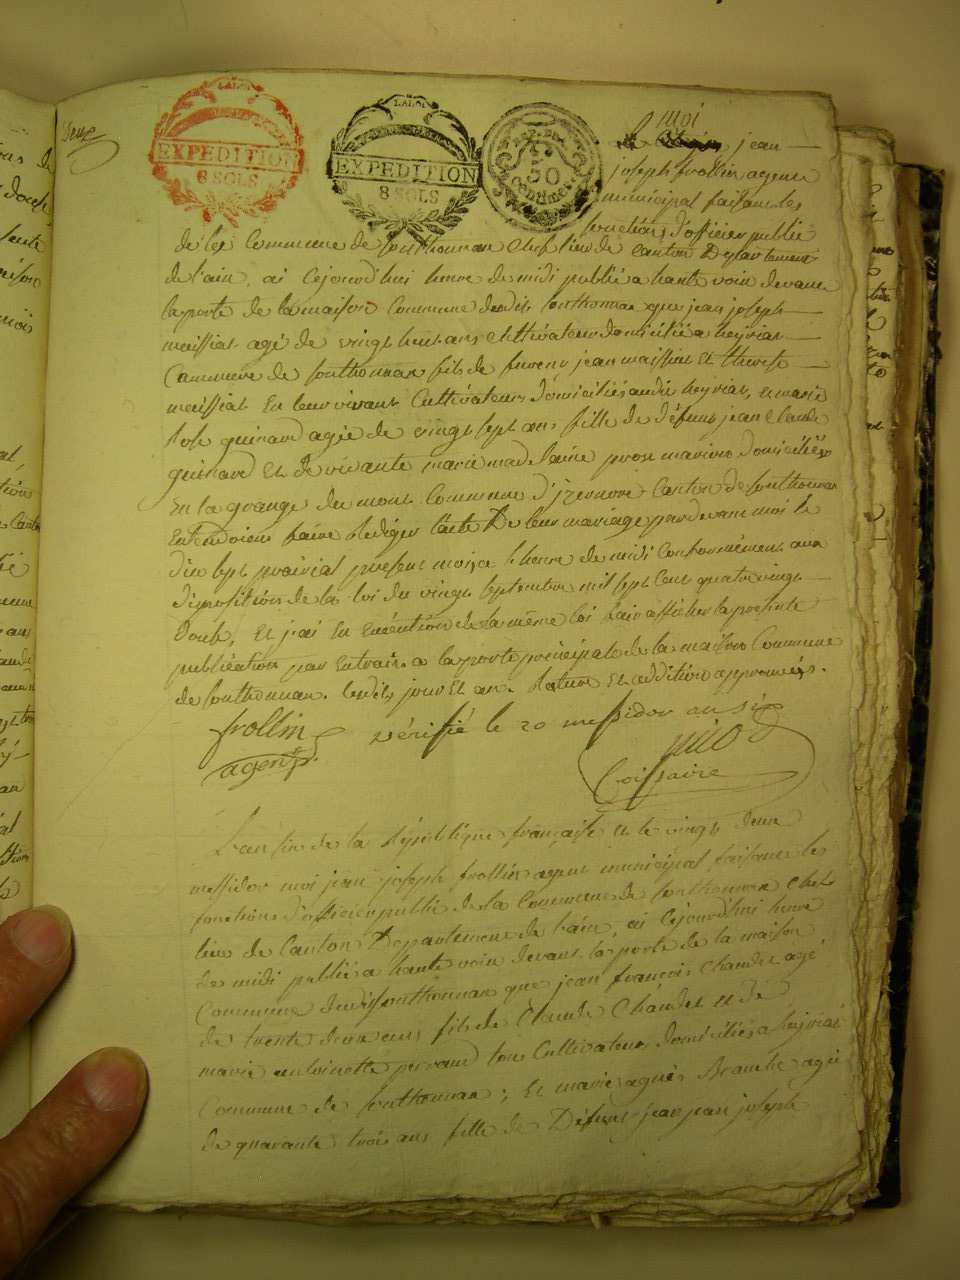 Deux
LA LOI
EXPEDITION
8 SOLS
LA LOI
EXPEDITION
8 SOLS
50
Centimes
moi
jean
joseph frollin agent
municipal faisant les
fonctions d'officier public
de la Commune de Sonthonnax Chef lieu de Canton Département
de l'ain, ai Cejourd'hui heure de midi publié a haute voix devant
la porte de la maison Commune dudit Sonthonnax que jean joseph
maissiat agé de vingt huit ans Cultivateur domicilié a heyriat
Commune de Sonthonnax fils de furent jean maissiat Et therese
maissiat En leur vivant Cultivateurs domiciliés audit heyriat, et marie
Rose guinard agée de vingt sept ans fille de défunt jean Claude
guinard Et de vivante marie madelaine domiciliés
En la grange du mont Commune d'izernore Canton de Sonthonnax
Entendoient faire Rediger l'acte De leur mariage pardevant moi le
dix sept prairial présent mois a l'heure de midi Conformément aux
dispositions de la loi du vingt septembre mil sept Cent quatre vingt
douze, Et j'ai En exécution de la même loi fait afficher la présente
publication par Extrait a la porte principale de la maison Commune
de Sonthonnax. ledit jour Et an. Rature Et addition approuvés.
frollin
agent
vérifié le 20 messidor an six
L'an six de la République française et le vingt deux
messidor moi jean joseph frollin agent municipal faisant les
fonctions d'officier public de la Commune de Sonthonnax Chef
lieu de Canton Département de l'ain, ai Cejourd'hui heure
de midi publié a haute voix devant la porte de la maison
Commune dudit Sonthonnax que jean françois Chandel agé
de trente deux ans fils de Claude Chandel et de
marie antoinette tous Cultivateurs domiciliés a heyriat
Commune de Sonthonnax; Et marie agnès agée
de quarante trois ans fille de Défunt jean jean joseph